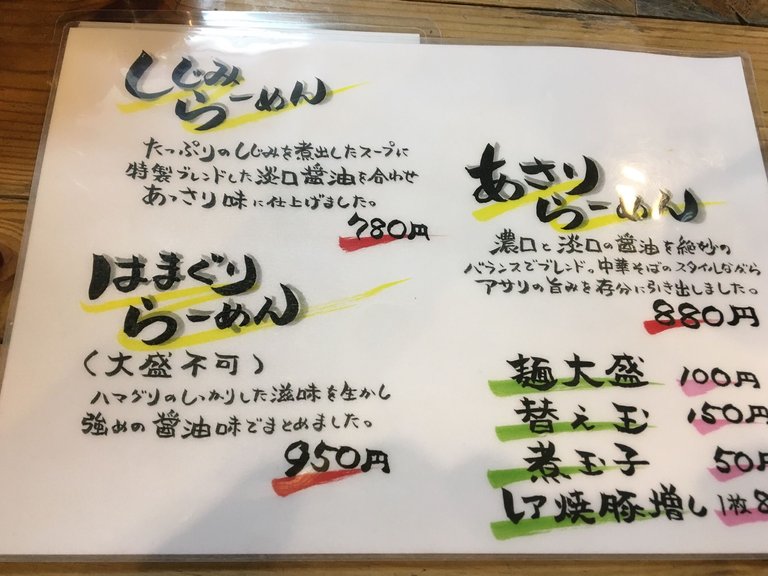 しじみ
らーめん
たっぷりのしじみを煮出したスープに
特製ブレンドした淡口醤油を合わせ
あっさり味に仕上げました。
780円
はまぐり
らーめん
(大盛不可)
ハマグリのしっかりした滋味を生かし
強めの醤油味でまとめました。
950円
あさり
らーめん
濃口と淡口の醤油を絶妙の
バランスでブレンド。中華そばのスタイルながら
アサリの旨みを存分に引き出しました。
880円
麺大盛 100円
替え玉 150円
煮玉子 50円
レア焼豚増し 1枚8